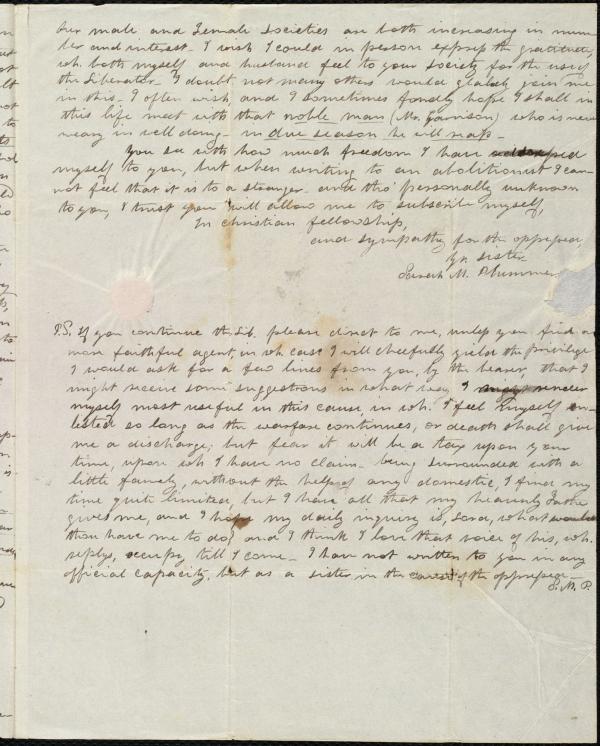 Our male and Female Societies are both increasing in num
ber and interest. I wish I could in person express the gratitude,
wh. both myself and husband feel to your Society for the use of
the Liberator. I doubt not many others would gladly join me
in this. I often wish, and I sometimes fondly hope I shall in
this life meet with that noble man (Mr. Garrison) who is never
weary in well doing - in due season he will reap.
You see with how much freedom I have
myself to you, but when writing to an abolitionist I can-
not feel that it is to a stranger. and tho' personally unknown
to you, I trust you will allow me to subscribe myself,
In christian fellowship,
and sympathy for the oppressed,
Yr. sister
Sarah M. Plummer.
P.S. If you continue the Lib. please direct to me, unless you find a
more faithful agent, in wh. case I will cheerfully yield the privilege
I would ask for a few lines from you, by the bearer, that I
might receive some suggestions in what way I might render
myself most useful in this cause, in wh. I feel myself en-
listed so long as the warfare continues, or death shall give
me a discharge; but fear it will be a tax upon your
time, upon wh I have no claim - being surrounded with a
little family, without the help of any domestic, I find my
time quite limited, but I have all that my heavenly Father
gives me, and I hope my daily inquiry is, Lord, what wouldst
thou have me to do, and I think I love that voice of his, wh.
replys, occupy till I come - I have not written to you in any
official capacity, but as a sister in the cause of the oppressed -
S. M. P.